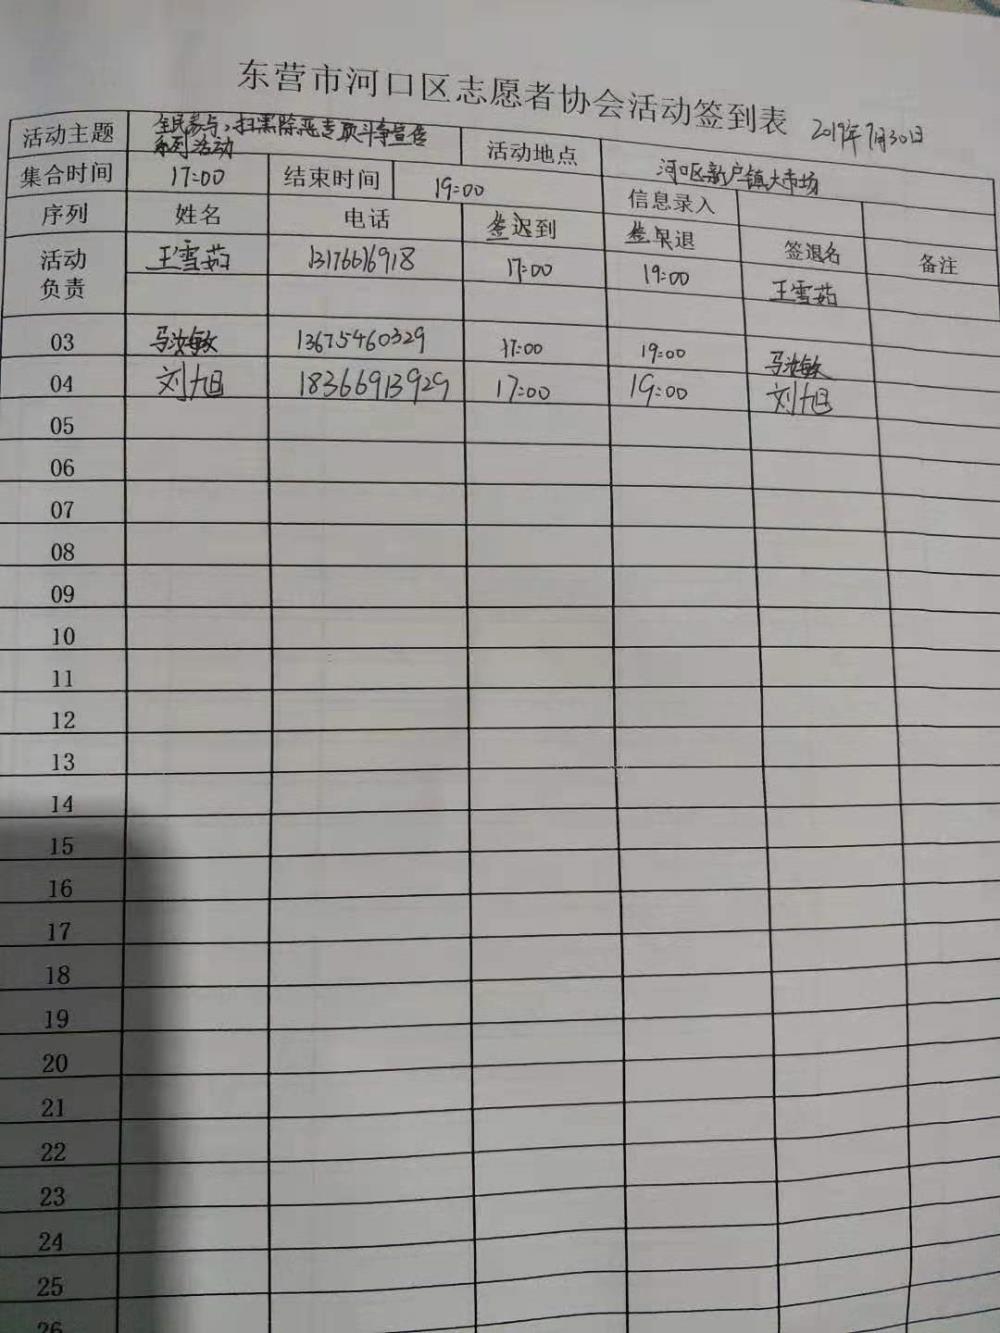 东营市河口区志愿者协会活动签到表 2019年7月30日
活动主题 全民参与,扫黑除恶专项斗争宣传 活动地点 河口区新户镇大市场
系列活动
集合时间 17:00 结束时间 19:00 信息录入
序列 姓名 电话 签迟到 签早退 签退名 备注
活动 王雪茹 13176616918 17:00 19:00 王雪茹
负责
03 马汝敏 13675460329 17:00 19:00 马汝敏
04 刘旭 18366913929 17:00 19:00 刘旭
05
06
07
08
09
10
11
12
13
14
15
16
17
18
19
20
21
22
23
24
25
26